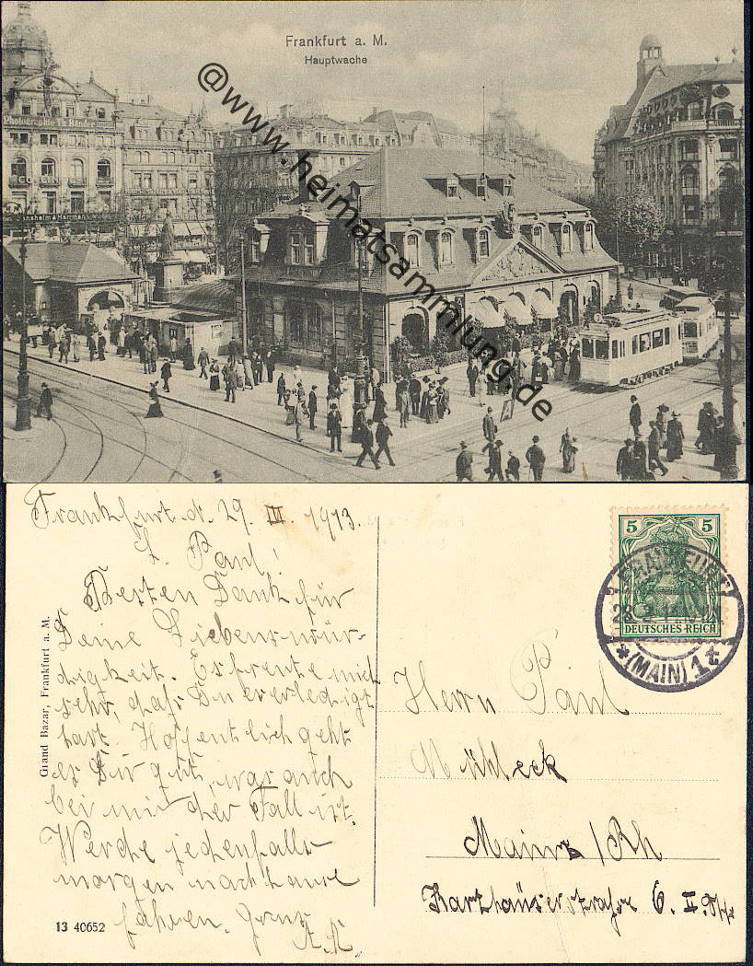 Frankfurt a. M.
Hauptwache
Photographie
@www.heimatsammlung.de
Frankfurt. d. 29. III. 1913.
L. Paul!
Besten Dank für
Deine Liebenswür-
digkeit. Es freute mich
sehr, dass Du es erledigt
hast. Hoffentlich geht
es Dir gut, was auch
bei mir der Fall ist.
Werde jedenfalls
morgen nach Hause
fahren. Gruss
Grand Bazar, Frankfurt a. M.
13 40652
5 5
DEUTSCHES REICH
FRANKFURT
*(MAIN) 1*
Herrn Paul
Mühleck
Mainz/Rh
Karthäuserstrasse 6. II.